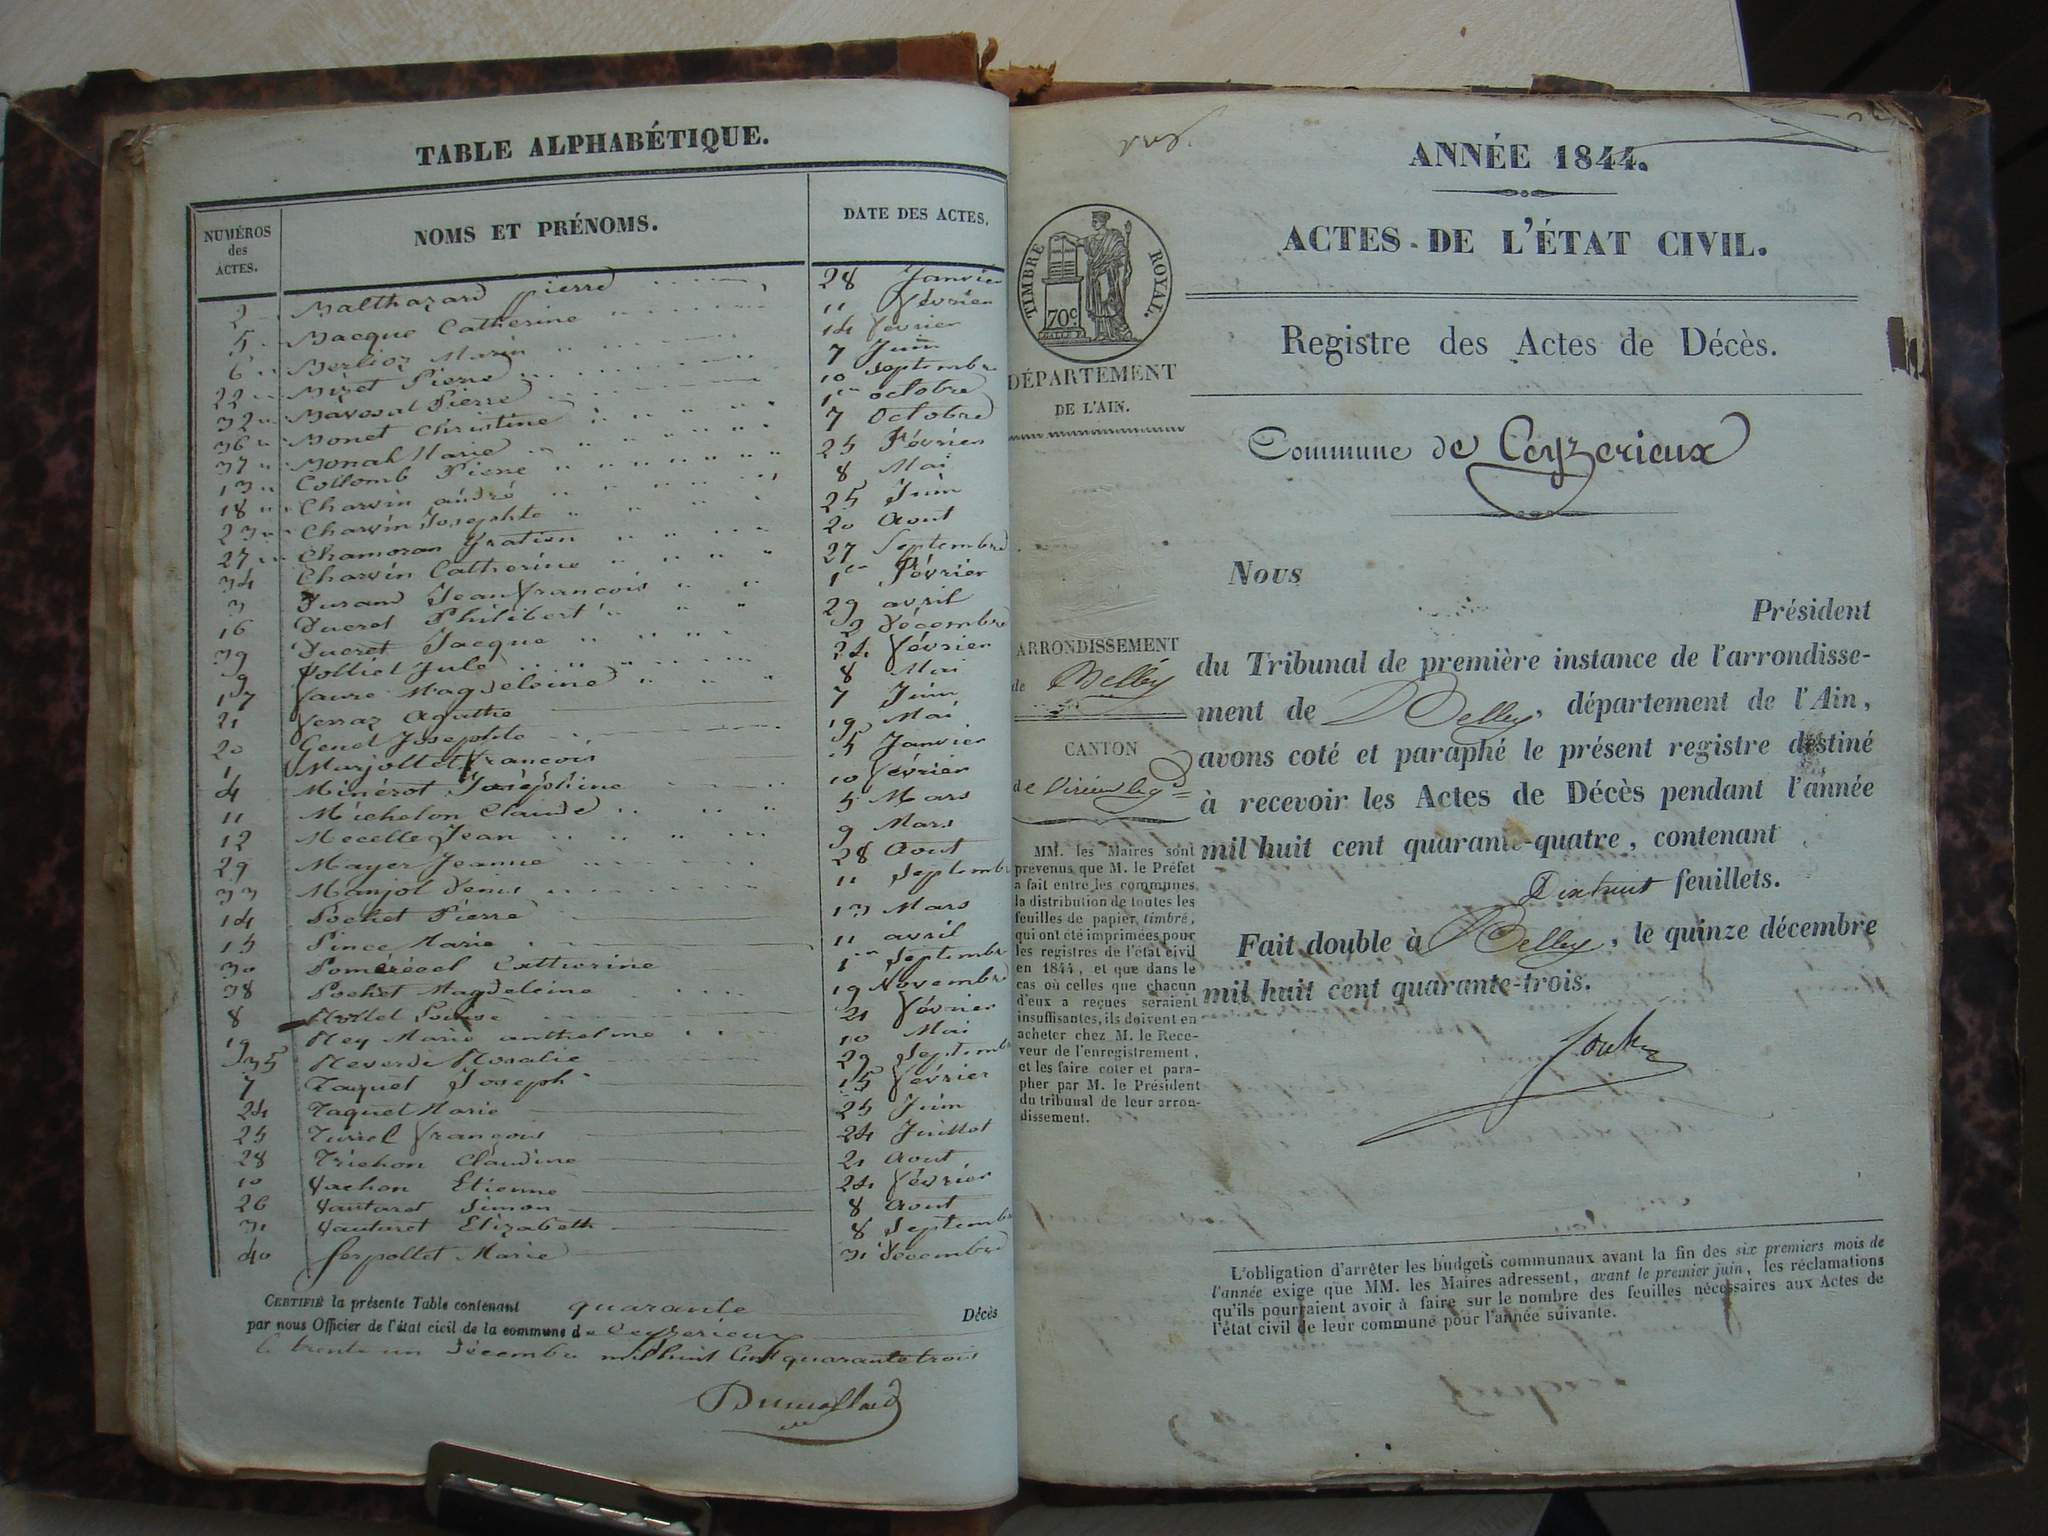 TABLE ALPHABÉTIQUE.
NUMÉROS des ACTES. NOMS ET PRÉNOMS. DATE DES ACTES.
2 Balthazard pierre 28 Janvier
5 Bacque Catherine 11 Février
6 Berlioz Marin 14 Février
22 Bizet Pierre 7 Juin
32 Pierre 10 Septembre
36 Bonet Christine 1er octobre
37 Marie 7 Octobre
13 Collomb Pierre 25 Février
18 Charvin andré 8 Mai
23 Charvin Josephte 25 Juin
27 Chamoran 20 Aout
34 Charvin Catherine 27 Septembre
3 Durand Jean François 1er Février
16 Ducret Philibert 29 avril
39 Ducret Jacque Décembre
9 Jule 24 Février
17 Favre Magdeleine 8 Mai
21 Ferraz Agathe 7 Juin
20 Genet Josephte 19 Mai
1 Marjollet François 5 Janvier
4 Minérot Joséphine 10 Février
11 Michelon Claude 5 Mars
12 Jean 9 Mars
29 Mayer Jeanne 28 Aout
33 Manjot Denis 11 Septemb
14 Pochet Pierre 13 Mars
15 Pince Marie 11 avril
30 Catherine 1er Septembr
38 Pochet Magdeleine 19 Novembre
8 Louise 21 Février
19 Rey Marie anthelme 10 Mai
35 Reverdi Rosalie 29 Septemb
7 Taquet Joseph 15 Février
24 Taquet Marie 25 Juin
25 Turrel François 24 Juillet
28 Trichon Claudine 21 Aout
10 Vachon Etienne 24 Février
26 Vautaret Simon 8 Aout
31 Vautaret Elizabeth 8 Septemb
40 Serpollet Marie 31 Décembre
CERTIFIÉ la présente Table contenant quarante Décès
par nous Officier de l'état civil de la commune de Ceyzerieux
le trente un Décembre mil huit Cent quarante trois
Dumollard
ANNÉE 1844.
ACTES DE L'ÉTAT CIVIL.
Registre des Actes de Décès.
TIMBRE ROYAL.
70c
DÉPARTEMENT
DE L'AIN.
Commune de Ceyzerieux
ARRONDISSEMENT
de Belley
CANTON
de Virieu le gd
MM. les Maires sont
prévenus que M. le Préfet
a fait entre les communes
la distribution de toutes les
feuilles de papier timbré,
qui ont été imprimées pour
les registres de l'état civil
en 1844, et que dans le
cas où celles que chacun
d'eux a reçues seraient
insuffisantes, ils doivent en
acheter chez M. le Rece-
veur de l'enregistrement,
et les faire coter et para-
pher par M. le Président
du tribunal de leur arron-
dissement.
Nous
Président
du Tribunal de première instance de l'arrondisse-
ment de Belley, département de l'Ain,
avons coté et paraphé le présent registre destiné
à recevoir les Actes de Décès pendant l'année
mil huit cent quarante-quatre, contenant
Dixhuit feuillets.
Fait double à Belley, le quinze décembre
mil huit cent quarante-trois.
L'obligation d'arrêter les budgets communaux avant la fin des six premiers mois de
l'année exige que MM. les Maires adressent, avant le premier juin, les réclamations
qu'ils pourraient avoir à faire sur le nombre des feuilles nécessaires aux Actes de
l'état civil de leur commune pour l'année suivante.